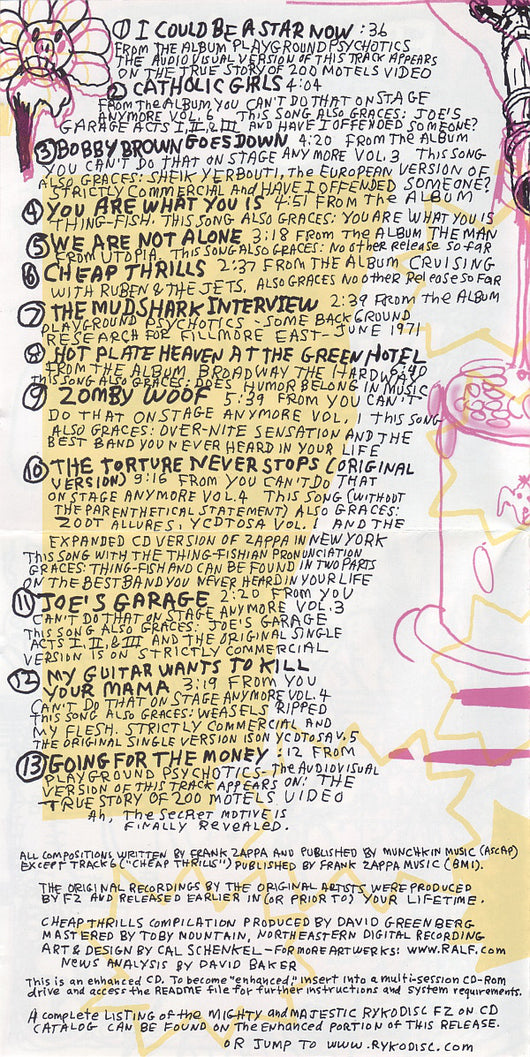 ① I COULD BE A STAR NOW :36
FROM THE ALBUM PLAYGROUND PSYCHOTICS
THE AUDIO VISUAL VERSION OF THIS TRACK APPEARS
ON THE TRUE STORY OF 200 MOTELS VIDEO
② CATHOLIC GIRLS 4:04
FROM the ALBUM YOU CAN'T DO THAT ON STAGE
ANYMORE VOL. 6 THIS SONG ALSO GRACES: JOE'S
GARAGE ACTS I, II, & III AND HAVE I OFFENDED SOMEONE?
③ BOBBY BROWN GOES DOWN 4:20 FROM the ALBUM
YOU CAN'T DO THAT ON STAGE ANY MORE VOL. 3 THIS SONG
ALSO GRACES: SHEIK YERBOUTI, the EUROPEAN VERSION OF
STRICTLY COMMERCIAL and HAVE I OFFENDED SOMEONE?
④ YOU ARE WHAT YOU IS 4:51 FROM the ALBUM
THING-FISH. THIS SONG ALSO GRACES: YOU ARE WHAT YOU IS
⑤ WE ARE NOT ALONE 3:18 FROM the ALBUM THE MAN
FROM UTOPIA. THIS SONG ALSO GRACES: NO other RELEASE SO FAR
⑥ CHEAP THRILLS 2:37 FROM THE ALBUM CRUISING
WITH RUBEN & THE JETS. ALSO GRACES NO other Release SO FAR
⑦ THE MUDSHARK INTERVIEW 2:39 FROM the ALBUM
PLAYGROUND PSYCHOTICS - SOME BACKGROUND
RESEARCH FOR FILLMORE EAST - JUNE 1971
⑧ HOT PLATE HEAVEN AT THE GREEN HOTEL
FROM THE ALBUM BROADWAY THE HARDWAY 6:40
THIS SONG ALSO GRACES: DOES HUMOR BELONG IN MUSIC
⑨ ZOMBY WOOF 5:39 FROM YOU CAN'T
DO THAT ON STAGE ANYMORE VOL. 1 THIS SONG
ALSO GRACES: OVER-NITE SENSATION AND THE
BEST BAND YOU NEVER HEARD IN YOUR LIFE
⑩ THE TORTURE NEVER STOPS (ORIGINAL
VERSION) 9:16 FROM YOU CAN'T DO THAT
ON STAGE ANYMORE VOL. 4 THIS SONG (WITHOUT
THE PARENTHETICAL STATEMENT) ALSO GRACES:
ZOOT ALLURES, YCDTOSA VOL. 1 AND THE
EXPANDED CD VERSION OF ZAPPA IN NEW YORK
THIS SONG WITH THE THING-FISHIAN PRONUNCIATION
GRACES: THING-FISH AND CAN BE FOUND IN TWO PARTS
ON THE BEST BAND YOU NEVER HEARD IN YOUR LIFE
⑪ JOE'S GARAGE 2:20 FROM YOU
CAN'T DO THAT ON STAGE ANYMORE VOL. 3
THIS SONG ALSO GRACES: JOE'S GARAGE
ACTS I, II, & III AND THE ORIGINAL SINGLE
VERSION IS ON STRICTLY COMMERCIAL
⑫ MY GUITAR WANTS TO KILL
YOUR MAMA 3:19 FROM YOU
CAN'T DO THAT ON STAGE ANYMORE VOL. 4
THIS SONG ALSO GRACES: WEASELS RIPPED
MY FLESH. STRICTLY COMMERCIAL AND
THE ORIGINAL SINGLE VERSION IS ON YCDTOSA V.5
⑬ GOING FOR THE MONEY :12 FROM
PLAYGROUND PSYCHOTICS - THE AUDIOVISUAL
VERSION OF THIS TRACK APPEARS ON: THE
TRUE STORY OF 200 MOTELS VIDEO
Ah, The SECRET MOTIVE IS
FINALLY REVEALED.
ALL COMPOSITIONS WRITTEN BY FRANK ZAPPA AND PUBLISHED BY MUNCHKIN MUSIC (ASCAP)
EXCEPT TRACK 6 ("CHEAP THRILLS") PUBLISHED BY FRANK ZAPPA MUSIC (BMI).
THE ORIGINAL RECORDINGS BY THE ORIGINAL ARTISTS WERE PRODUCED
BY FZ AND RELEASED EARLIER IN (OR PRIOR TO) YOUR LIFETIME.
CHEAP THRILLS COMPILATION PRODUCED BY DAVID GREENBERG
MASTERED BY TOBY MOUNTAIN, NORTHEASTERN DIGITAL RECORDING
ART & DESIGN BY CAL SCHENKEL - FOR MORE ARTWERKS: WWW.RALF.COM
NEWS ANALYSIS BY DAVID BAKER
This is an enhanced CD. To become "enhanced," insert into a multi-session CD-Rom
drive and access the README file for further instructions and system requirements.
A complete LISTING OF the MIGHTY and MAJESTIC RYKODISC FZ ON CD
CATALOG CAN BE FOUND ON THE ENHANCED PORTION OF THIS RELEASE.
OR JUMP TO WWW.RYKODISC.COM